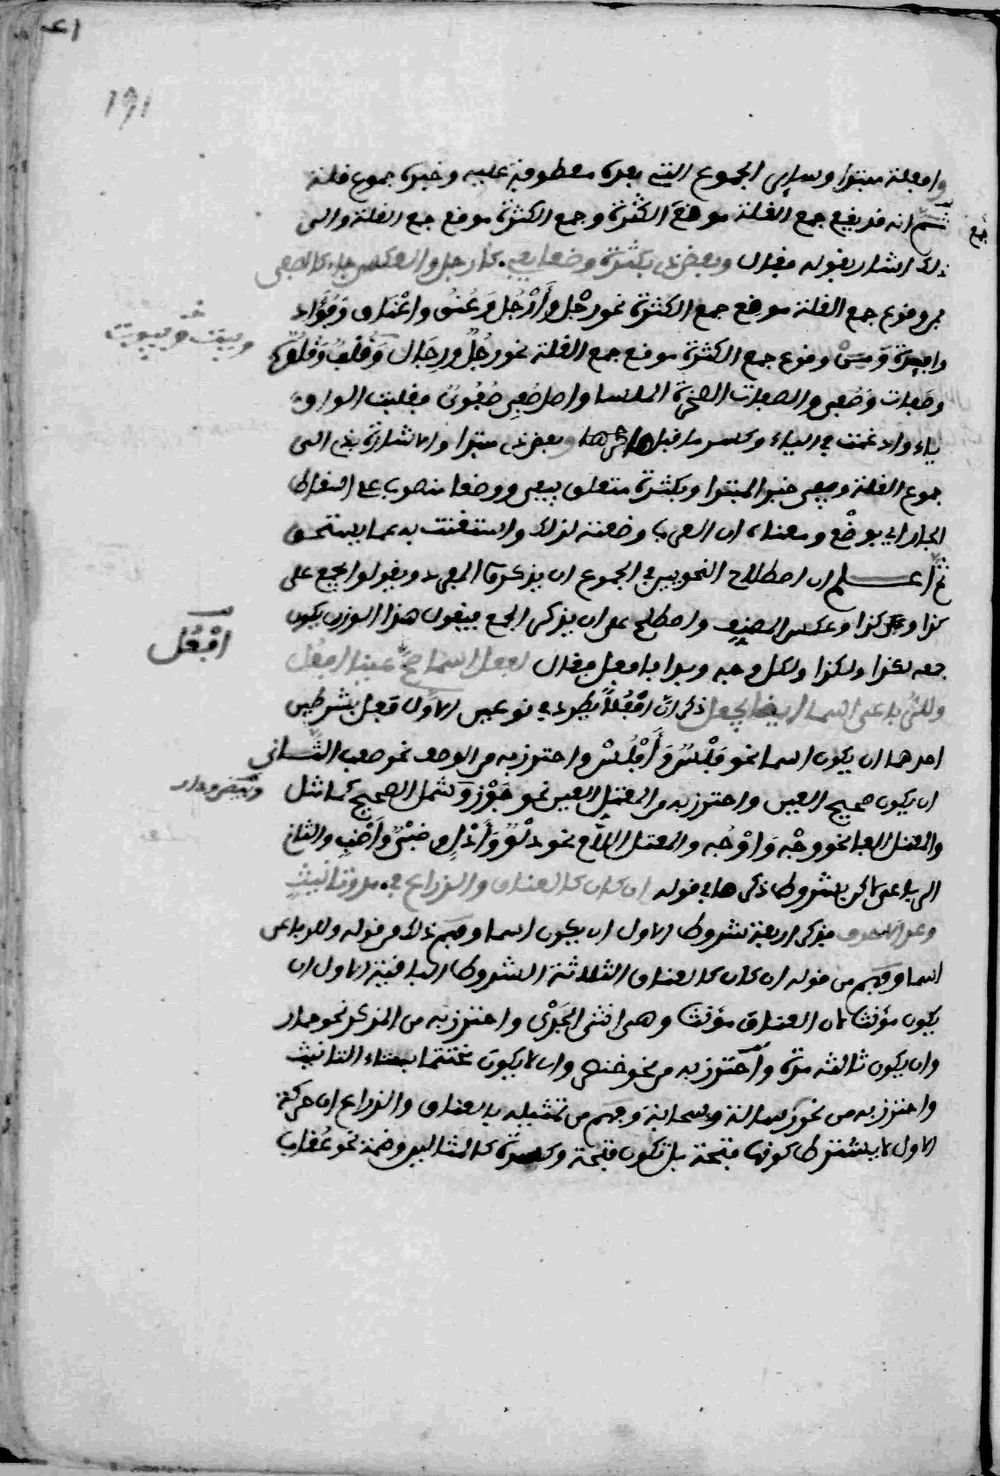 191
وافعلة مبتدا وساير الجموع التي بعده معطوفة عليه وخبره جموع قلة
ثم انه قد يقع جمع القلة موقع الكثرة وجمع الكثرة موقع جمع القلة والى
جمع
ذلك اشار بقوله فقال وبعض ذي بكثرة وضعا يفي كارجل والعكس جاء كالصفي
فمن وقوع جمع القلة موقع جمع الكثرة نحو رِجْل وأَرْجُل وعُنُق واعْناق وفُؤاد
وافئدة ومن وقوع جمع الكثرة موقع جمع القلة نحو رَجُل ورجال وقَلْب وقُلُوب
وبيت وبيوت
وصفات وصُفِي والصفات الصخرة الملساء واصل صُفِي صُفُوي فقلبت الواو
ياء وادغمت في الياء وكسر ما قبل وبعض ذي مبتدا والاشارة بذي الى
جموع القلة ويفي خبر المبتدا وبكثرة متعلق بيفي ووضعا منصوب على اسقاط
الجار اي بوضْع ومعناه ان العرب وضعته لذلك واستغنت به عما يستحق
ثم اعلم ان اصطلاح النحويين في الجموع ان يذكروا المفرد ويقولوا يجمع على
كذا و كذا وعكس المصنف واصطلح على ان يذكر الجمع فيقول هذا الوزن يكون
جمعه لكذا ولكذا ولكل وجه وبدا بافعل فقال لفعل اسما صح عينا افعل
افْعُل
وللرباعي اسما ايضا يجعل ذكر ان افْعُلا يطرد في نوعين الاول فعل بشرطين
احدهما ان يكون اسما نحو فَلْس وأَفْلُس واحترز به من الوصف نحو صعب الثاني
ان يكون صحيح العين واحترز به من المعتل العين نحو جَوْز وشمل الصحيح كما مثل
والمعتل الفا نحو وَجْه وأَوْجُه والمعتل اللام نحو دَلْو وأَدْلٍ وضبْي وأَضْبٍ والثاني
الرباعي لاكن بشروط ذكرها في قوله ان كان كالعناق والذراع في مد وتانيث
وعد الاحرف فذكر اربعة شروط الاول ان يكون اسما وفهم ذلك من قوله وللرباعي
اسما وفهم من قوله ان كان كالعناق الثلاثة الشروط الباقية الاول ان
يكون مؤنثا لان العناق مؤنثا وهي انثى الجَدْي واحترز به من المذكر نحو حمار
وان يكون ثالثه مدة واحترز به من نحو خنصر وان لا يكون مختتما بتاء التانيث
واحترز به من نحو رسالة وسحابة وفهم من تمثيله بالعناق والذراع ان حركة
الاول لا يشترط كونها فتحة بل تكون فتحة وكسرة كالمثالين وضمة نحو عُقاب